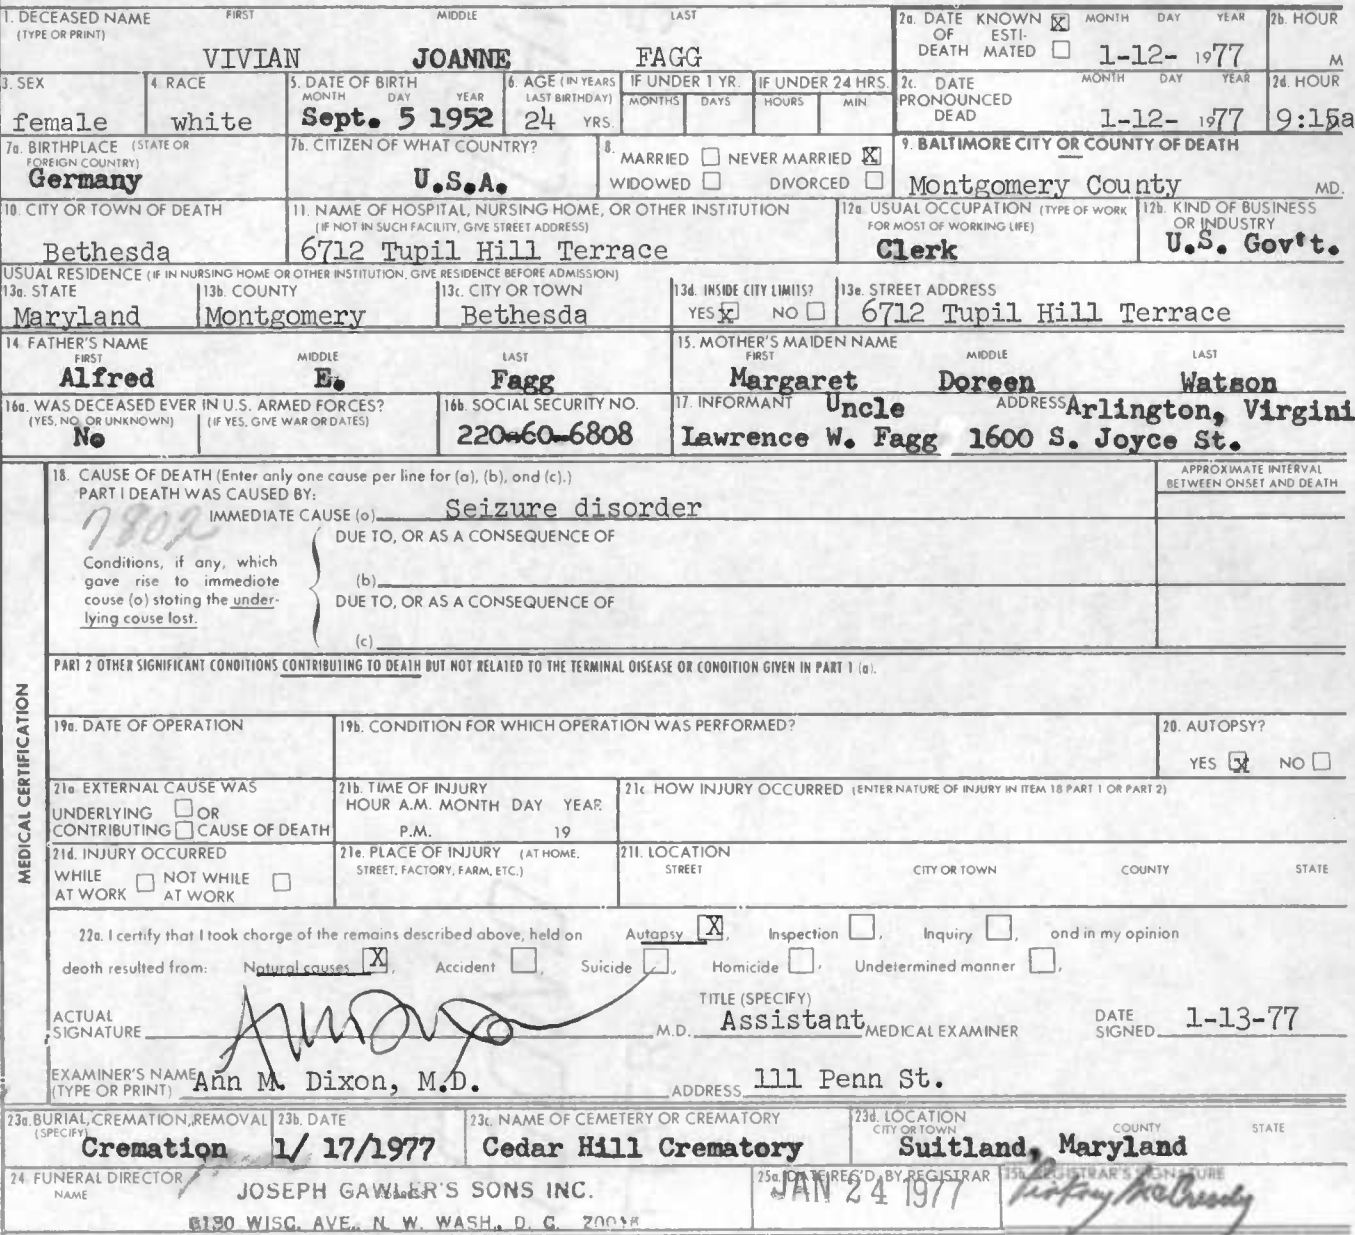 1. DECEASED NAME FIRST MIDDLE LAST
(TYPE OR PRINT)
VIVIAN JOANNE FAGG
2a. DATE KNOWN X MONTH DAY YEAR
OF ESTI-
DEATH MATED 1-12- 1977
2b. HOUR
M
3. SEX
female
4. RACE
white
5. DATE OF BIRTH
MONTH DAY YEAR
Sept. 5 1952
6. AGE (IN YEARS
LAST BIRTHDAY)
24 YRS.
IF UNDER 1 YR.
MONTHS DAYS
IF UNDER 24 HRS.
HOURS MIN
2c. DATE MONTH DAY YEAR
PRONOUNCED
DEAD 1-12- 1977
2d. HOUR
9:15a
7a. BIRTHPLACE (STATE OR
FOREIGN COUNTRY)
Germany
7b. CITIZEN OF WHAT COUNTRY?
U.S.A.
8.
MARRIED NEVER MARRIED X
WIDOWED DIVORCED
9. BALTIMORE CITY OR COUNTY OF DEATH
Montgomery County MD.
10. CITY OR TOWN OF DEATH
Bethesda
11. NAME OF HOSPITAL, NURSING HOME, OR OTHER INSTITUTION
(IF NOT IN SUCH FACILITY, GIVE STREET ADDRESS)
6712 Tupil Hill Terrace
12a. USUAL OCCUPATION (TYPE OF WORK
FOR MOST OF WORKING LIFE)
Clerk
12b. KIND OF BUSINESS
OR INDUSTRY
U.S. Gov't.
USUAL RESIDENCE (IF IN NURSING HOME OR OTHER INSTITUTION, GIVE RESIDENCE BEFORE ADMISSION)
13a. STATE
Maryland
13b. COUNTY
Montgomery
13c. CITY OR TOWN
Bethesda
13d. INSIDE CITY LIMITS?
YES X NO
13e. STREET ADDRESS
6712 Tupil Hill Terrace
14. FATHER'S NAME
FIRST MIDDLE LAST
Alfred E. Fagg
15. MOTHER'S MAIDEN NAME
FIRST MIDDLE LAST
Margaret Doreen Watson
16a. WAS DECEASED EVER IN U.S. ARMED FORCES?
(YES, NO, OR UNKNOWN) (IF YES, GIVE WAR OR DATES)
No
16b. SOCIAL SECURITY NO.
220-60-6808
17. INFORMANT Uncle ADDRESS Arlington, Virgini
Lawrence W. Fagg 1600 S. Joyce St.
MEDICAL CERTIFICATION
18. CAUSE OF DEATH (Enter only one cause per line for (a), (b), and (c).)
APPROXIMATE INTERVAL
BETWEEN ONSET AND DEATH
PART I DEATH WAS CAUSED BY:
7802
IMMEDIATE CAUSE (a) Seizure disorder
DUE TO, OR AS A CONSEQUENCE OF
Conditions, if any, which
gave rise to immediate
cause (a) stating the under-
lying cause last.
(b)
DUE TO, OR AS A CONSEQUENCE OF
(c)
PART 2 OTHER SIGNIFICANT CONDITIONS CONTRIBUTING TO DEATH BUT NOT RELATED TO THE TERMINAL DISEASE OR CONDITION GIVEN IN PART 1 (a).
19a. DATE OF OPERATION
19b. CONDITION FOR WHICH OPERATION WAS PERFORMED?
20. AUTOPSY?
YES X NO
21a EXTERNAL CAUSE WAS
UNDERLYING OR
CONTRIBUTING CAUSE OF DEATH
21b. TIME OF INJURY
HOUR A.M. MONTH DAY YEAR
P.M. 19
21c HOW INJURY OCCURRED (ENTER NATURE OF INJURY IN ITEM 18 PART 1 OR PART 2)
21d. INJURY OCCURRED
WHILE NOT WHILE
AT WORK AT WORK
21e. PLACE OF INJURY (AT HOME,
STREET, FACTORY, FARM, ETC.)
21f. LOCATION
STREET CITY OR TOWN COUNTY STATE
22a. I certify that I took charge of the remains described above, held on Autopsy X, Inspection , Inquiry , and in my opinion
death resulted from: Natural causes X, Accident , Suicide , Homicide , Undetermined manner ,
ACTUAL
SIGNATURE M.D.
TITLE (SPECIFY)
Assistant MEDICAL EXAMINER
DATE
SIGNED 1-13-77
EXAMINER'S NAME
(TYPE OR PRINT) Ann M. Dixon, M.D. ADDRESS 111 Penn St.
23a. BURIAL, CREMATION, REMOVAL
(SPECIFY)
Cremation
23b. DATE
1/ 17/1977
23c. NAME OF CEMETERY OR CREMATORY
Cedar Hill Crematory
23d. LOCATION
CITY OR TOWN COUNTY STATE
Suitland, Maryland
24 FUNERAL DIRECTOR
NAME JOSEPH GAWLER'S SONS INC.
5130 WISC. AVE., N. W. WASH., D. C. 20016
25a. DATE REC'D. BY REGISTRAR
JAN 24 1977
25b. REGISTRAR'S SIGNATURE